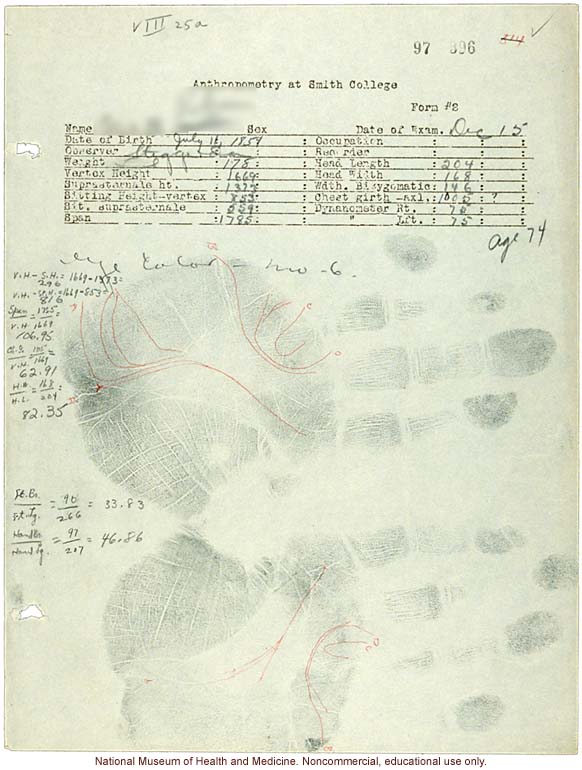 VIII 25a
97 396 314
Anthropometry at Smith College
Form #2
Name Sex Date of Exam. Dec 15
Date of Birth July 16, 1859 : Occupation :
Observer : Recorder :
Weight : 175 : Head Length : 204
Vertex Height : 1669 : Head Width : 168
Suprasternale ht. : 1373 : Wdth. Bizygomatic: 146
Sitting Height-vertex : 853 : Chest girth -axl.: 1005 : ?
Sit. suprasternale : 559 : Dynanometer Rt. : 75
Span : 1785 : " Lft. : 75
age 74
Eye Color - no -6.
V.H - S.H. = 1669-1373 =
296
V.H. - S.H. = 1669-853 =
816
Span = 1785 =
V.H. 1669
106.95
V.H. 1669
62.91
H.B. = 168 =
H.L. 204
82.35
Ft.Br. = 90 = 33.83
Ft.Lg. 266
Hand Br. = 97 = 46.86
Hand lg. 207
National Museum of Health and Medicine. Noncommercial, educational use only.